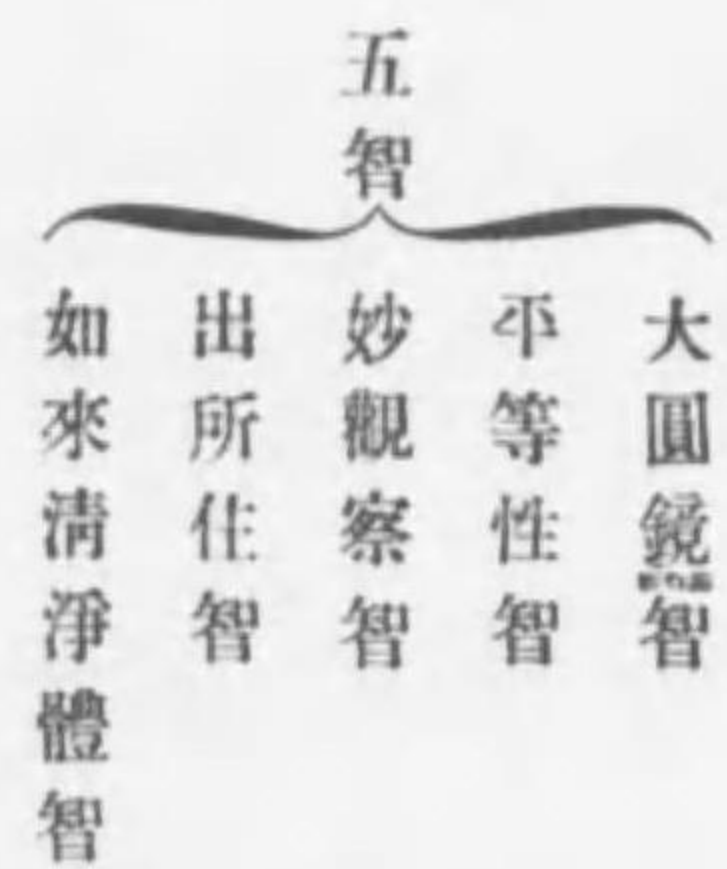 五智
大圓鏡智
平等性智
妙觀察智
出所住智
如來淸淨體智